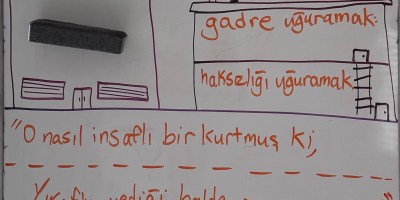 gadre uğuramak:
haksızlığı uğuramak
"O nasıl insaflı bir kurtmuş ki,
yediği halde